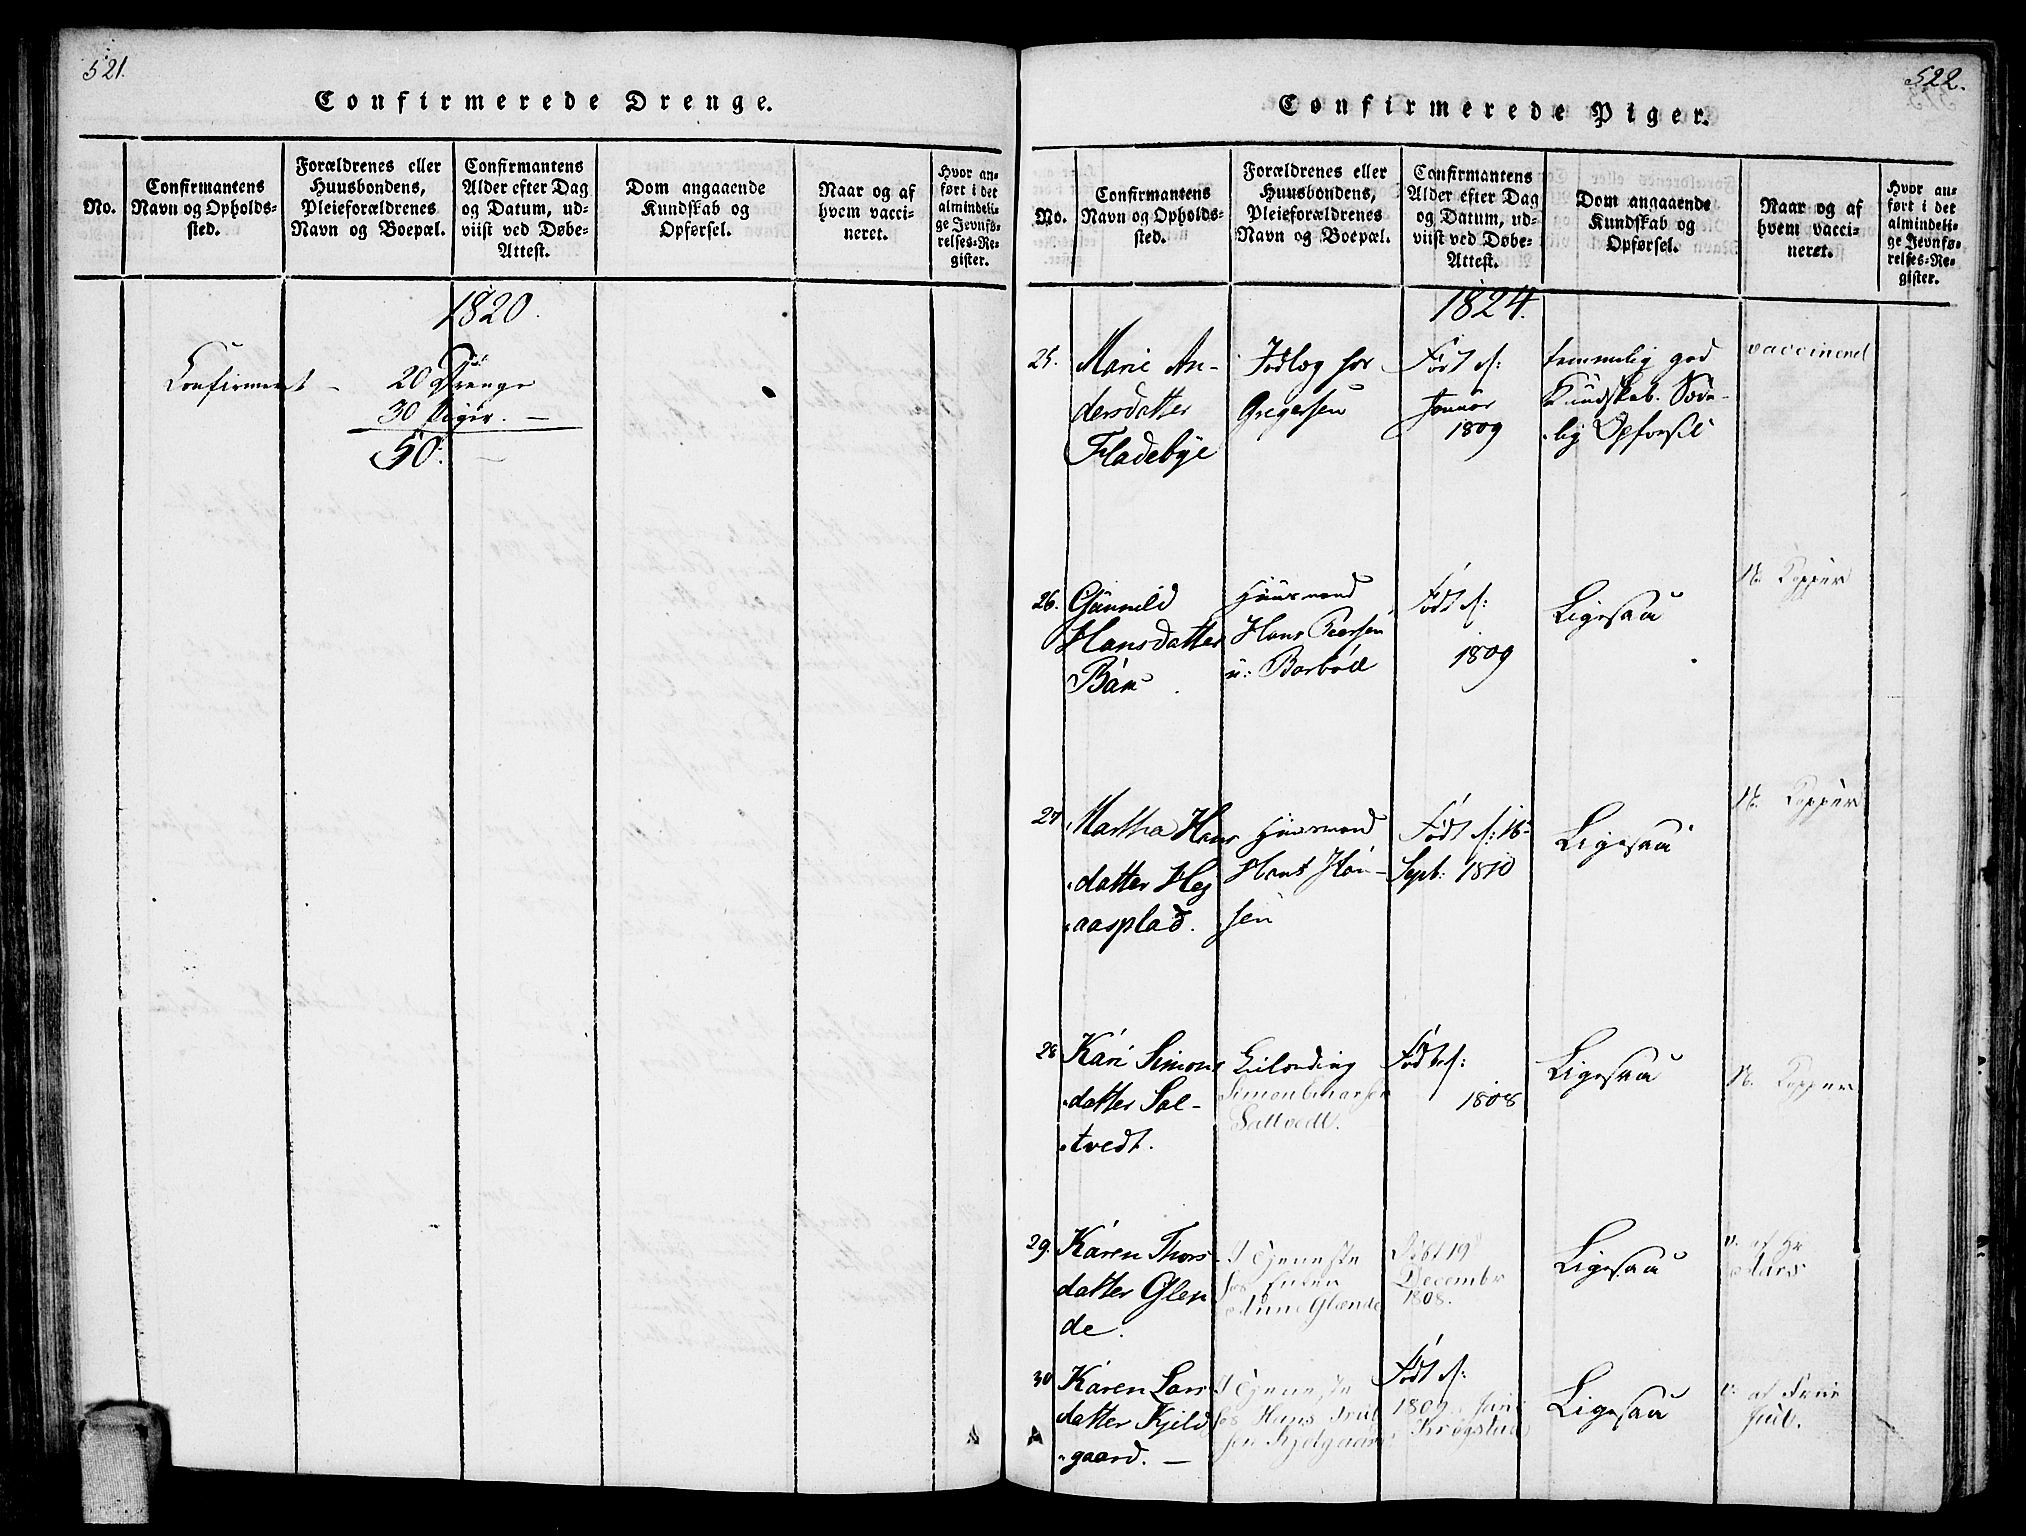 521.
Confirmerede Drenge.
No.
Confirmantens
Navn og Opholds-
sted.
Forældrenes eller
Huusbondens,
Pleieforældrenes
Navn og Boepæl.
Confirmantens
Alder efter Dag
og Datum, ud-
viist ved Døbe-
Attest.
Dom angaaende
Kundskab og
Opførsel.
Naar og af
hvem vacci-
neret.
Hvor an-
ført i det
almindeli-
ge Jevnfø-
relses-Re-
gister.
1820.
Confirmeret - 20 Drenge
30 Piger. -
50. -
522.
Confirmerede Piger.
No.
Confirmantens
Navn og Opholds-
sted.
Forældrenes eller
Huusbondens,
Pleieforældrenes
Navn og Boepæl.
Confirmantens
Alder efter Dag
og Datum, ud-
viist ved Døbe-
Attest.
Dom angaaende
Kundskab og
Opførsel.
Naar og af
hvem vacci-
neret.
Hvor an-
ført i det
almindeli-
ge Jevnfø-
relses-Re-
gister.
1824.
25.
Marie An-
dersdatter
Fladebye
Gregersen
Født d:
Januar
1809
temmelig god
Kundskab. Sæde-
lig Opførsel
vaccinered
26.
Gunnild
Hansdatter
Huusmand
Hans Peersen
Født d:
1809
Ligesaa
N. Kopper
27
Martha Hans
datter Heg
aasplad.
Huusmand
Hans Han-
sen
Født d: 16
Sept: 1810
Ligesaa
N. Kopper
28
Kari Simons
datter Sal-
tvedt.
Leilending
Simen
Saltvedt.
Født d:
1808
Ligesaa
N. Kopper
29.
Karen Thors
datter Glen
de.
I Tjeneste
hos Enken
Anne Glænde
Født 19
December
1808.
Ligesaa
v. af Hr
Aars
30
Karen Lars
datter Kjeld
gaard. -
I Tjeneste
hos Hans
sen Kjelgaard
Født d:
1809
Krogstad
Ligesaa
v. af
Jub.